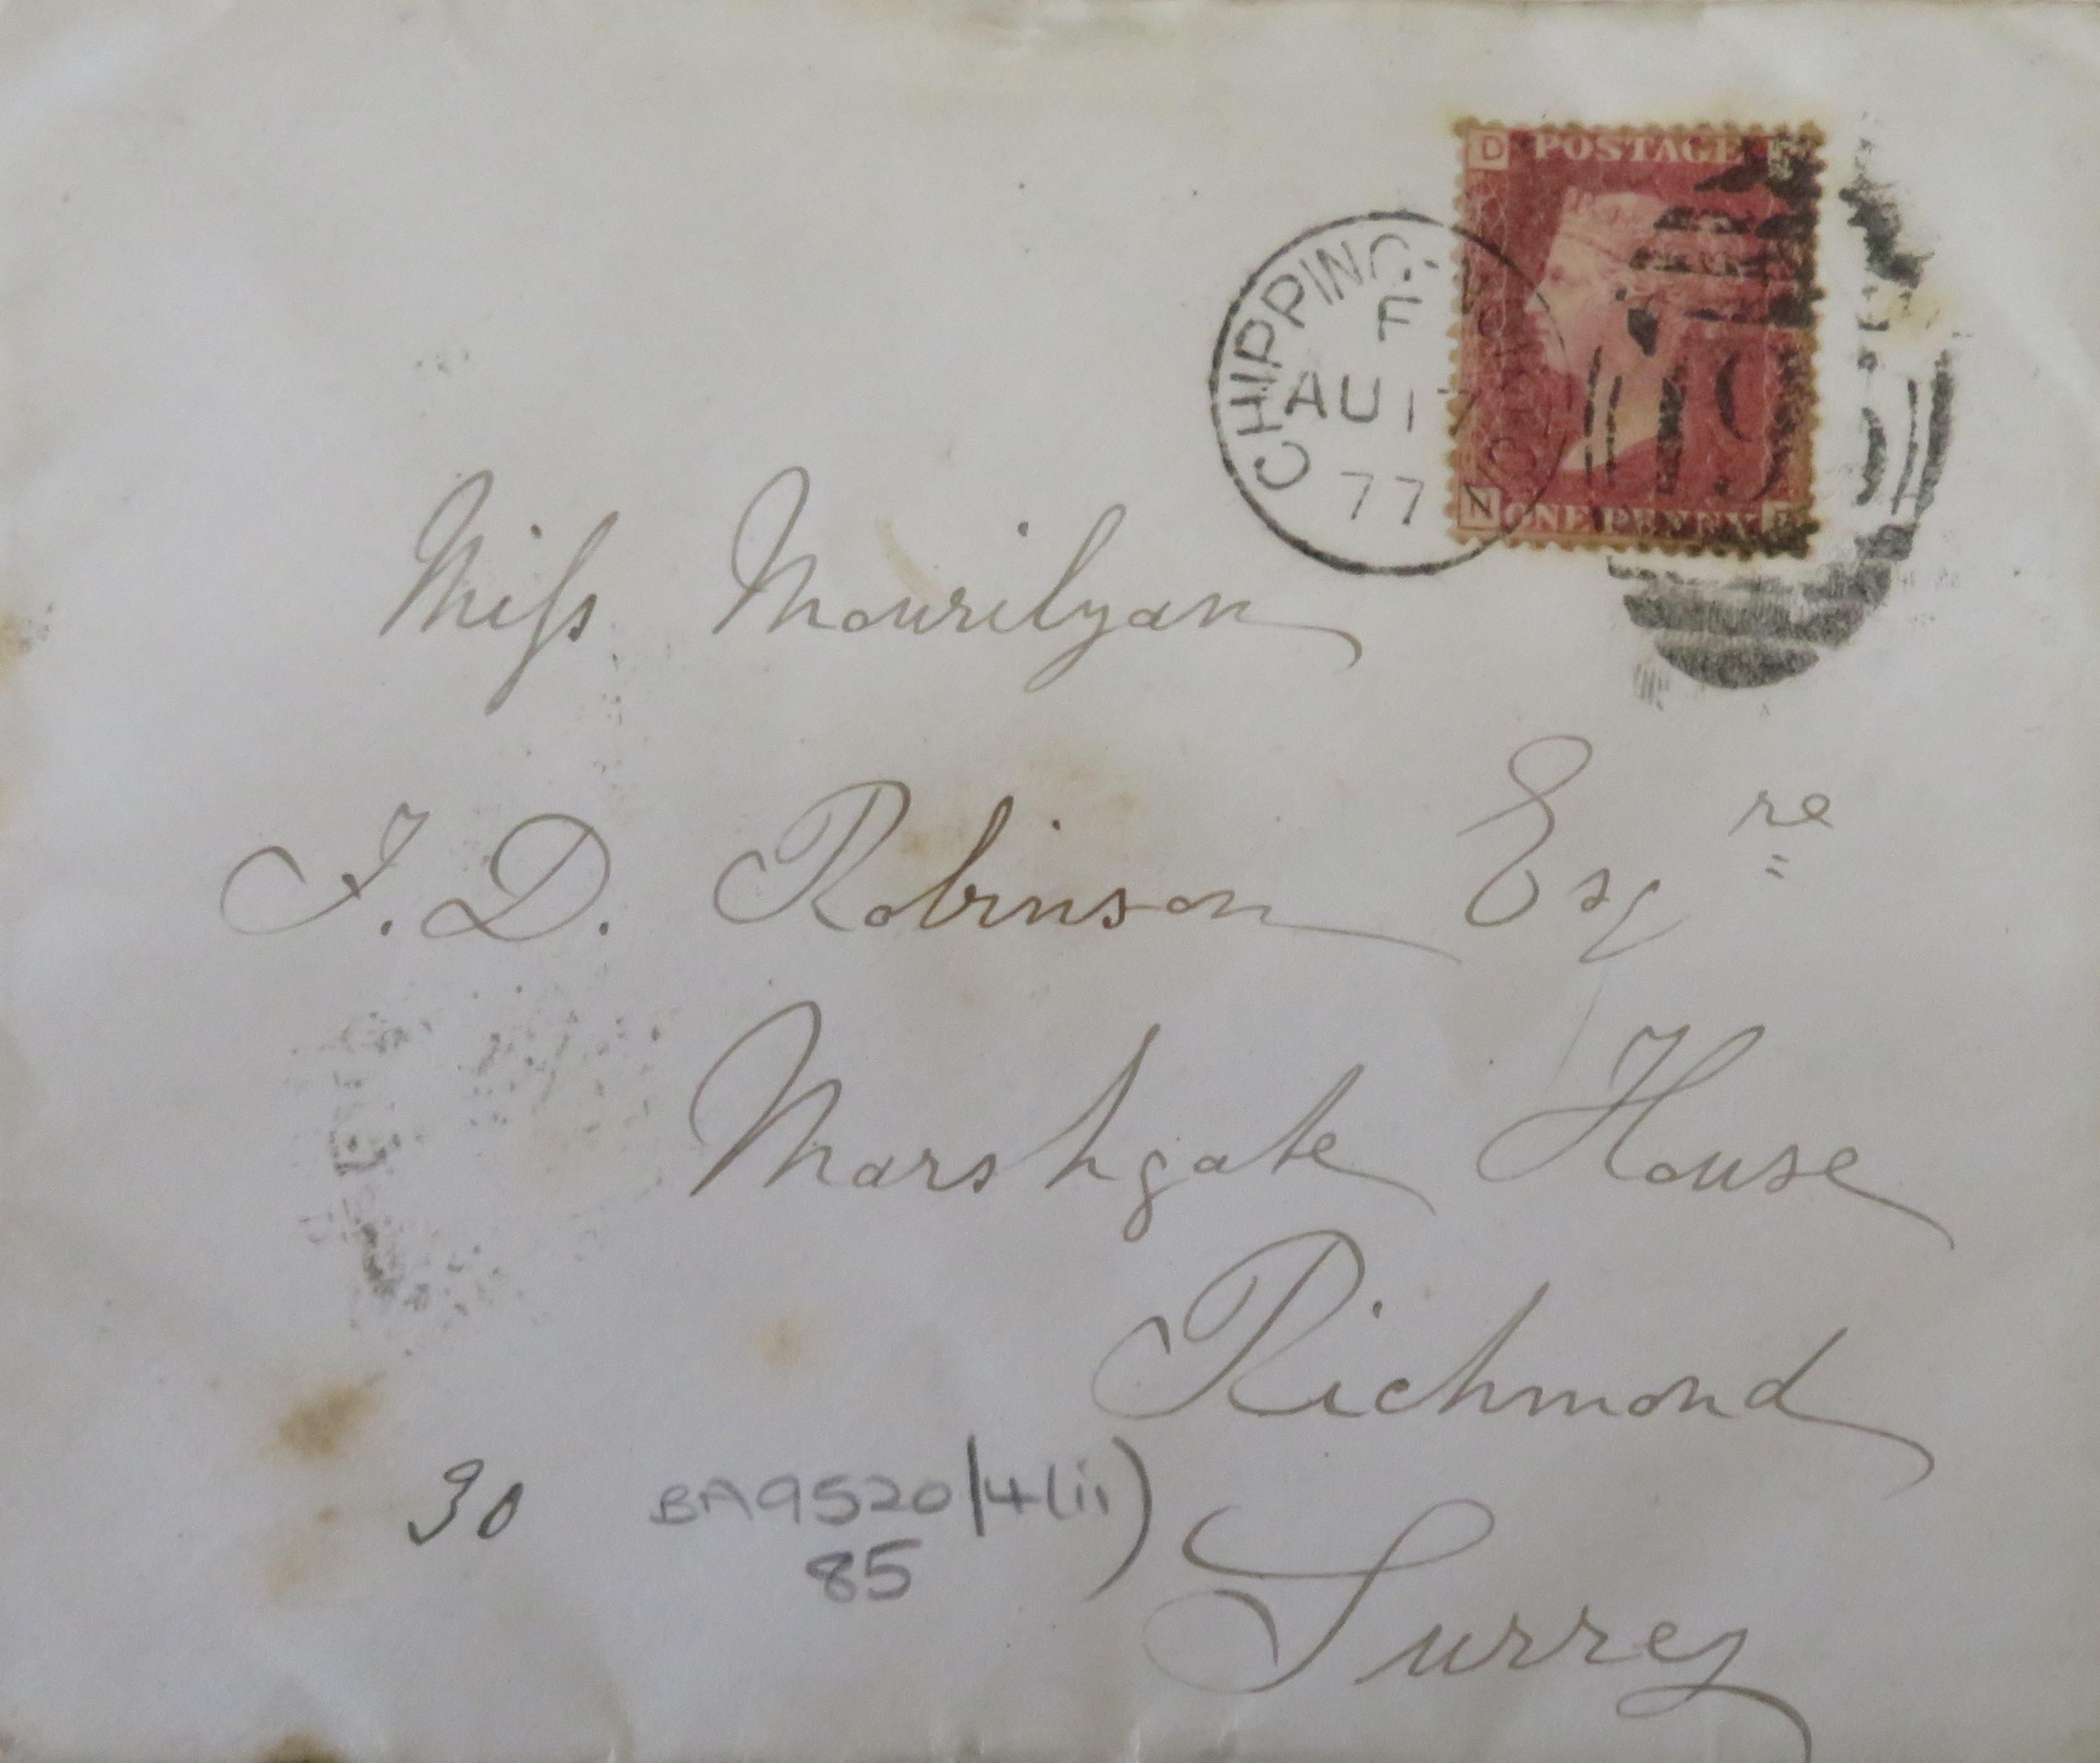 D POSTAGE
CHIPPING
F
AU 17
77
N ONE PENNY
Miss Mourilyan
J. D. Robinson Esqre
Marshgate House
Richmond
Surrey
30
BA9520/4(ii)
85